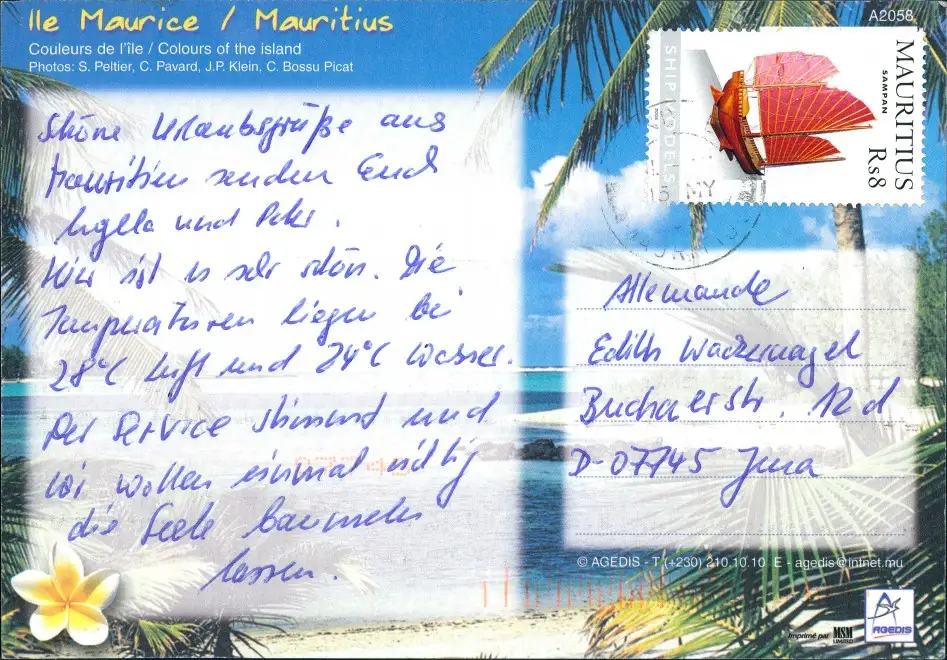 Ile Maurice / Mauritius
Couleurs de l'île / Colours of the island
Photos: S. Peltier, C. Pavard, J.P. Klein, C. Bossu Picat
A2058
MAURITIUS
SAMPAN
Rs8
SHIP MODELS
MY
Schöne Urlaubsgrüße aus
Mauritius senden Euch
und Peter.
Hier ist es sehr schön. Die
Temperaturen liegen bei
28°C Luft und 24°C Wasser.
Der Service stimmt und
wir wollen einmal richtig
die Seele baumeln
lassen.
Allemande
Edith Wackernagel
Buchaerstr. 12d
D-07745 Jena
© AGEDIS - T (+230) 210.10.10 E - agedis@intnet.mu
Imprimé par MSM LIMITED
AGEDIS